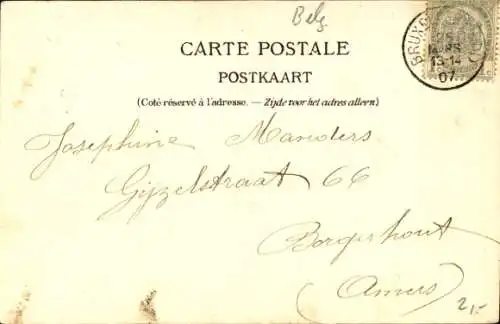 Belg.
CARTE POSTALE
POSTKAART
(Coté réservé à l'adresse. — Zijde voor het adres alleen)
BRUXE
MARS
13-14
07
Josephine Manders
Gijzelstraat 66
Borgerhout
(Anvers)
2,-